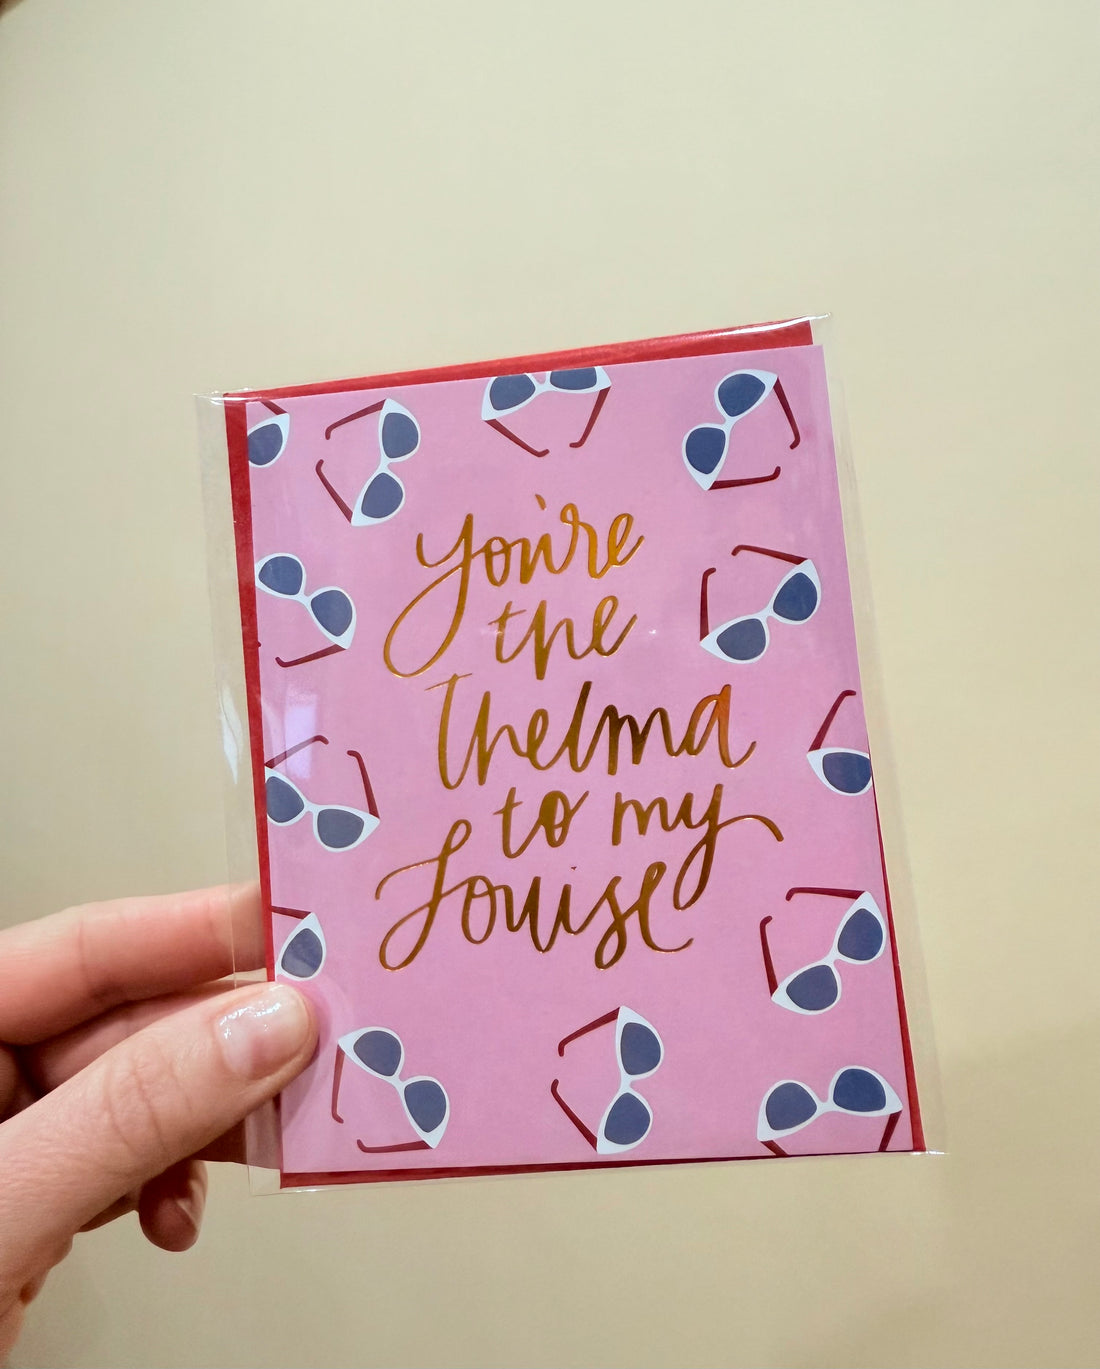 you're
the
Thelma
to my
Louise